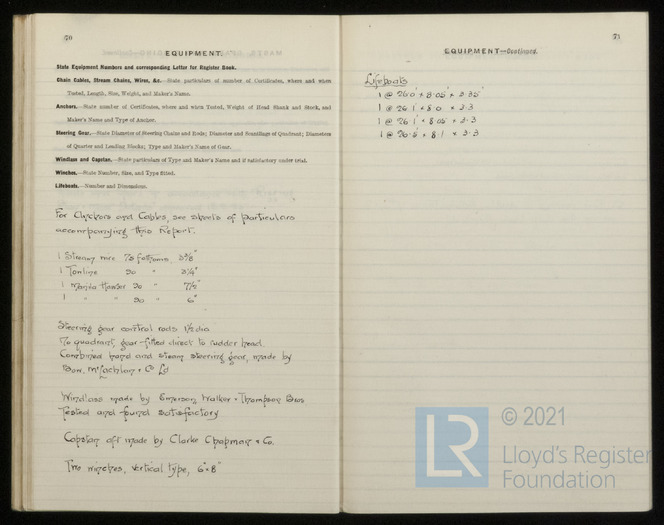 70
EQUIPMENT.
State Equipment Numbers and corresponding Letter for Register Book.
Chain Cables, Stream Chains, Wires, &c.—State particulars of number of Certificates, where and when
Tested, Length, Size, Weight, and Maker's Name.
Anchors.—State number of Certificates, where and when Tested, Weight of Head Shank and Stock, and
Maker's Name and Type of Anchor.
Steering Gear.—State Diameter of Steering Chains and Rods; Diameter and Scantlings of Quadrant; Diameters
of Quarter and Leading Blocks; Type and Maker's Name of Gear.
Windlass and Capstan.—State particulars of Type and Maker's Name and if satisfactory under trial.
Winches.—State Number, Size, and Type fitted.
Lifeboats.—Number and Dimensions.
For Anchors and Cables, see sheets of particulars
accompanying this Report.
1 Stream wire 75 fathoms 3⅜"
1 Towline 90 " 3¼"
1 Manila Hawser 90 " 7½"
1 " " 90 " 6"
Steering gear control rods 1½ dia
No quadrant, gear fitted direct to rudder head.
Combined hand and steam steering gear, made by
Bow, McLachlan & Co Ld
Windlass made by Emerson, Walker & Thompson Bros
Tested and found satisfactory
Capstan aft made by Clarke Chapman & Co.
Two winches, vertical type, 6" × 8"
71
EQUIPMENT—Continued.
Lifeboats
1 @ 26.0' × 8.05' × 3.35'
1 @ 26.1' × 8.0 × 3.3
1 @ 26.1' × 8.05' × 3.3
1 @ 26.5' × 8.1 × 3.3
LR
© 2021
Lloyd's Register
Foundation